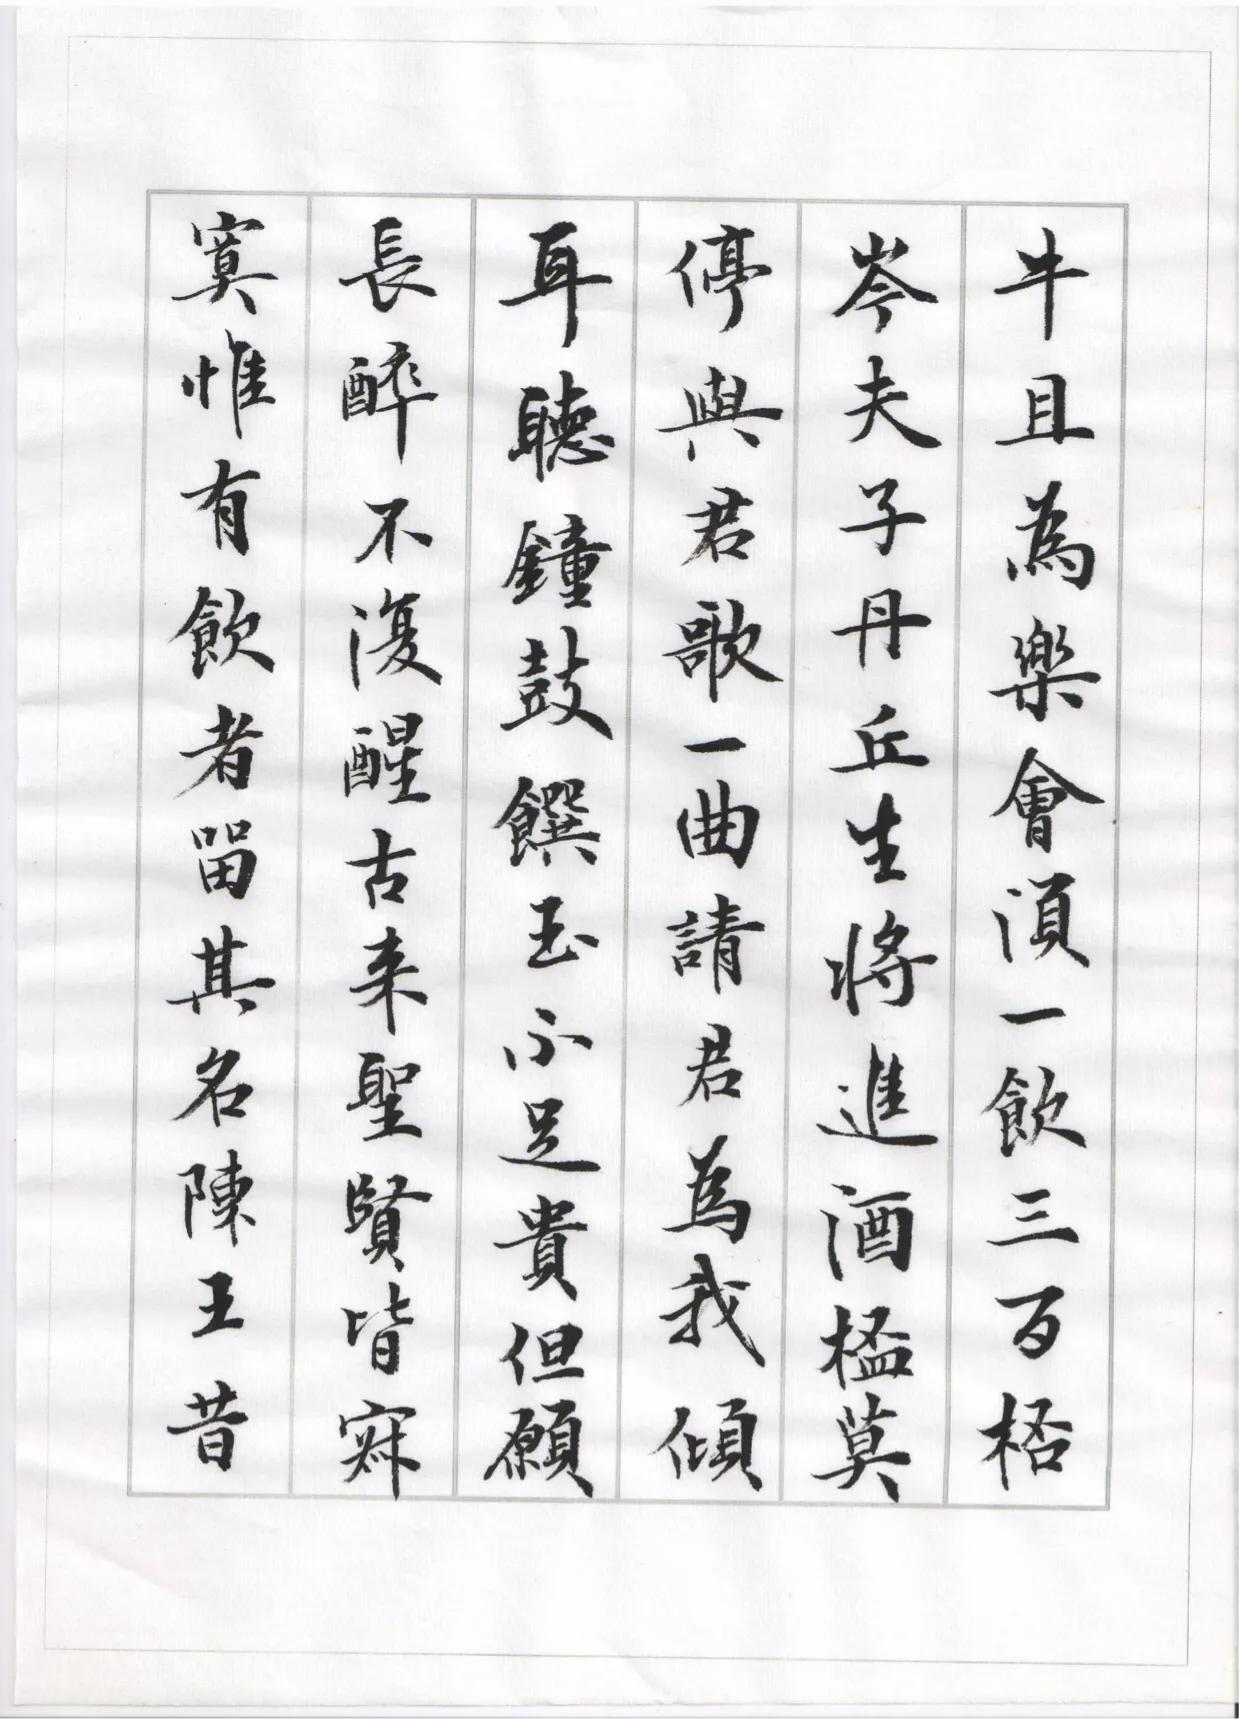 牛且為樂會須一飲三百桮
岑夫子丹丘生將進酒榼莫
停與君歌一曲請君為我傾
耳聽鐘鼓饌玉不足貴但願
長醉不復醒古来聖賢皆寂
寞惟有飲者留其名陳王昔